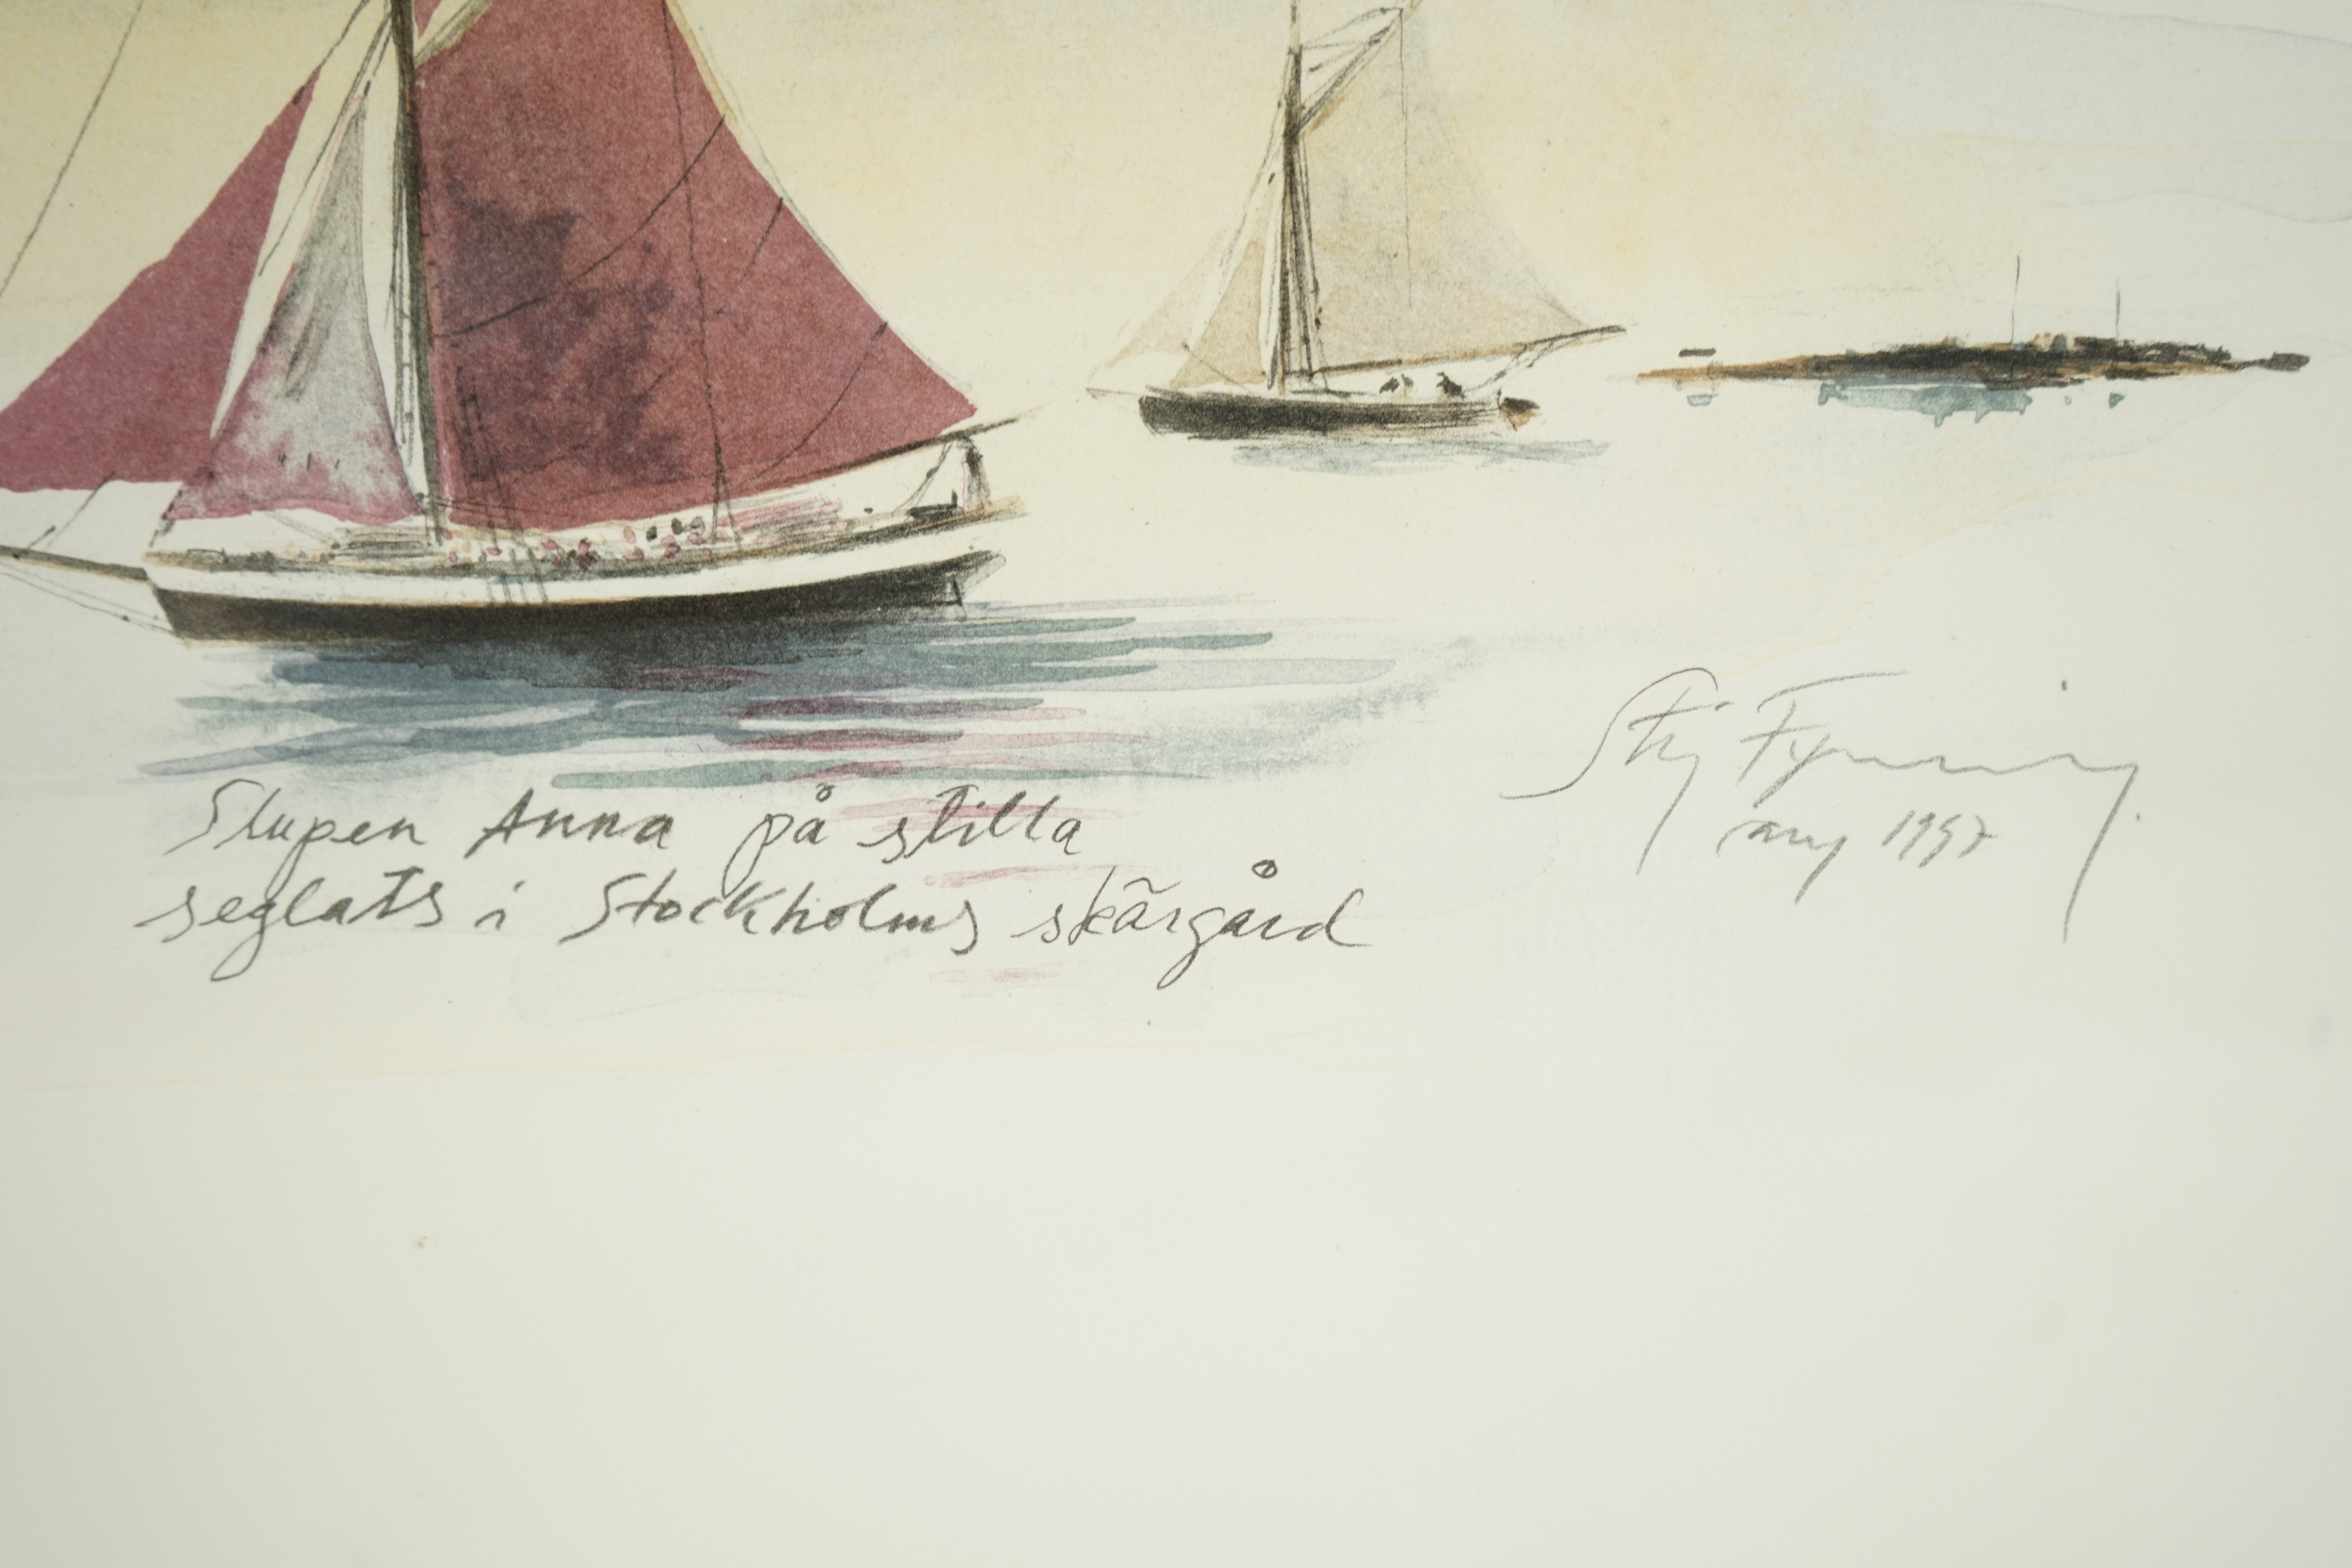 Slupen Anna på stilla
seglats i Stockholms skärgård
Stig Fyring
aug 1997